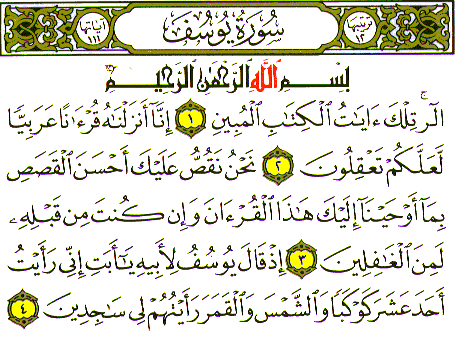 سُورَةُ يُوسُفَ
بِسْمِ اللَّهِ الرَّحْمَٰنِ الرَّحِيمِ
الٓر تِلْكَ ءَايَٰتُ الْكِتَٰبِ الْمُبِينِ ١ إِنَّآ أَنزَلْنَٰهُ قُرْءَٰنًا عَرَبِيًّا
لَّعَلَّكُمْ تَعْقِلُونَ ٢ نَحْنُ نَقُصُّ عَلَيْكَ أَحْسَنَ الْقَصَصِ
بِمَآ أَوْحَيْنَآ إِلَيْكَ هَٰذَا الْقُرْءَانَ وَإِن كُنتَ مِن قَبْلِهِۦ
لَمِنَ الْغَٰفِلِينَ ٣ إِذْ قَالَ يُوسُفُ لِأَبِيهِ يَٰٓأَبَتِ إِنِّي رَأَيْتُ
أَحَدَ عَشَرَ كَوْكَبًا وَالشَّمْسَ وَالْقَمَرَ رَأَيْتُهُمْ لِي سَٰجِدِينَ ٤